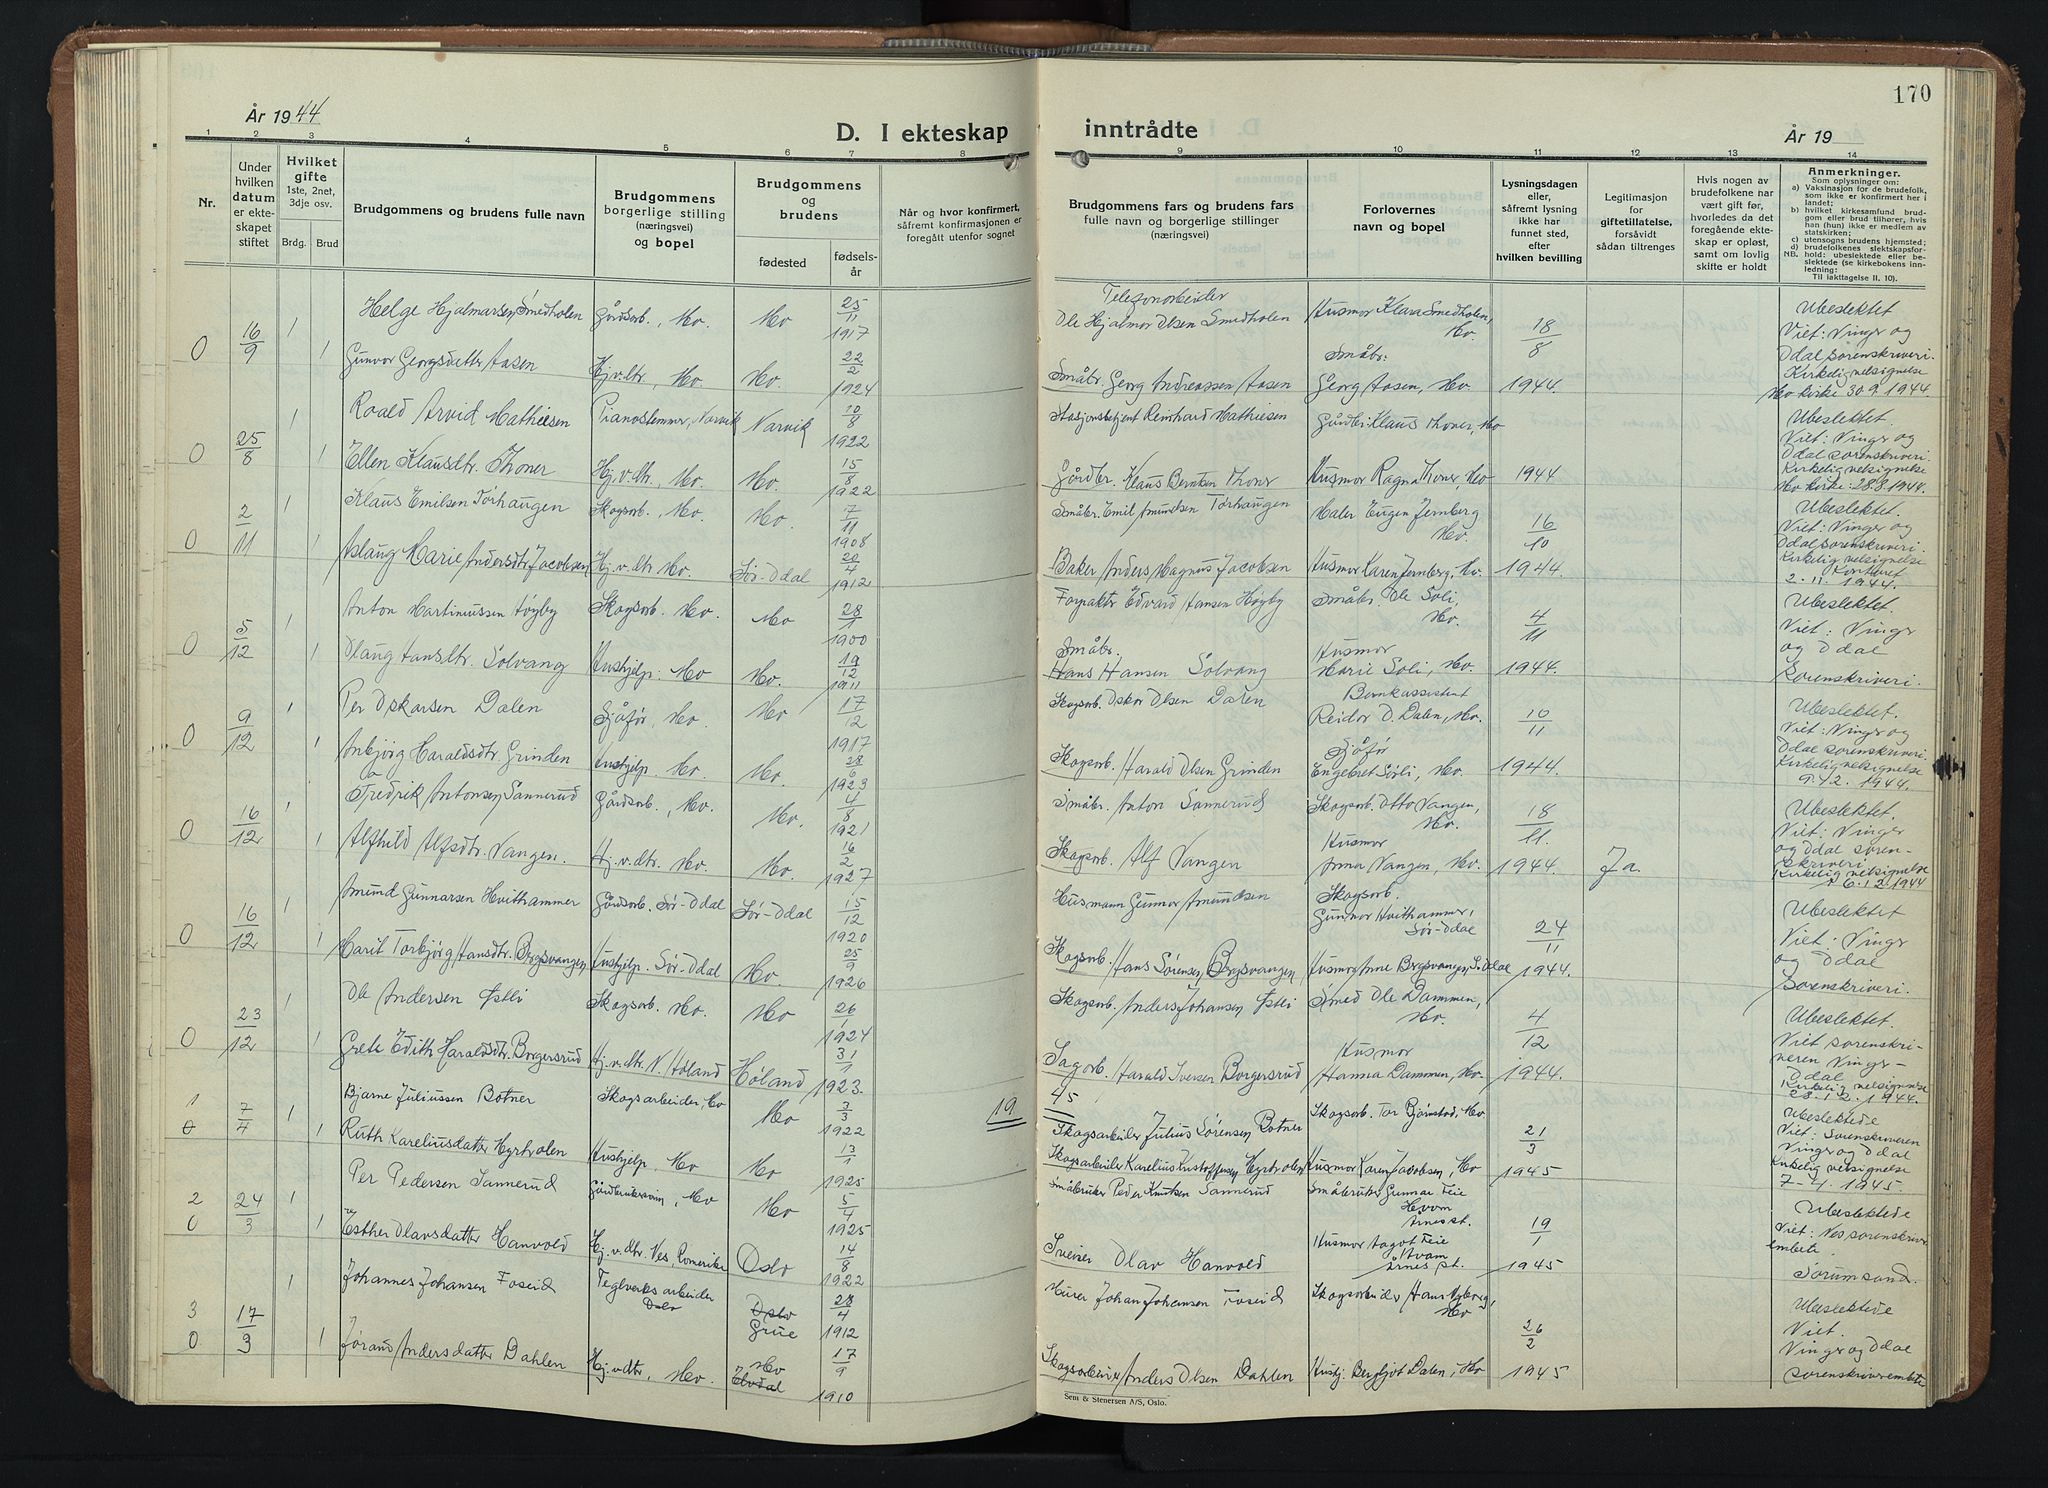 170
År 1944
D. I ekteskap
inntrådte
År 19
1 2 3 4 5 6 7 8 9 10 11 12 13 14
Nr.
Under hvilken datum er ekteskapet stiftet
Hvilket gifte
1ste, 2net, 3dje osv.
Brdg. Brud
Brudgommens og brudens fulle navn
Brudgommens borgerlige stilling
(næringsvei)
og bopel
Brudgommens og brudens
fødested
fødselsår
Når og hvor konfirmert,
såfremt konfirmasjonen er
foregått utenfor sognet
Brudgommens fars og brudens fars
fulle navn og borgerlige stillinger
(næringsvei)
Forlovernes
navn og bopel
Lysningsdagen
eller,
såfremt lysning
ikke har
funnet sted,
efter
hvilken bevilling
Legitimasjon
for
giftetillatelse,
forsåvidt
sådan tiltrenges
Hvis nogen av
brudefolkene har
vært gift før,
hvorledes da det
foregående ekteskap er opløst,
samt om lovlig
skifte er holdt
Anmerkninger.
Som oplysninger om:
a) Vaksinasjon for de brudefolk,
som ikke er konfirmert her i
landet;
b) hvilket kirkesamfund brudgom eller brud tilhører, hvis
han (hun) ikke er medlem av
statskirken;
c) utensogns brudens hjemsted;
d) brudefolkenes slektskapsforhold: ubeslektede eller beslektede (se kirkebokens innledning:
NB.
Til iakttagelse II. 10).
0 16/9 1 Helge Hjalmarsen Smedholen Gårdsarb., Mo. Mo 25/11 1917 Telefonarbeider Ole Hjalmar Olsen Smedholen Husmor Klara Smedholen, Mo. 18/8 Ubeslektet
1 Gunvor Georgsdatter Aasen Hj.v.dtr., Mo. Mo. 22/2 1924 Småbr. Georg Andreassen Aasen Småbr. Georg Aasen, Mo. 1944 Viet: Vinger og Odal sorenskriveri. Kirkelig velsignelse Mo kirke 30.9.1944.
0 25/8 1 Roald Arvid Mathiesen Pianostemmer, Narvik Narvik 10/8 1922 Stasjonsbetjent Reinhard Mathiesen Gårdbr. Klaus Thoner, Mo Ubeslektet.
1 Ellen Klausdtr. Thoner Hj.v.dtr., Mo. Mo. 15/8 1922 Gårdbr. Klaus Berntsen Thoner Husmor Ragna Thoner, Mo 1944 Viet: Vinger og Odal sorenskriveri. Kirkelig velsignelse Mo kirke: 28.8.1944.
0 2/11 1 Klaus Emilsen Tørhaugen Skogsarb., Mo. Mo. 7/11 1908 Småbr. Emil Amundsen Tørhaugen Maler Eugen Jernberg Mo. 16/10 Ubeslektet.
1 Aslaug Marie Andersdtr. Jacobsen Hj.v.dtr. Mo. Sør-Odal 20/4 1912 Baker Anders Magnus Jacobsen Husmor Karen Jernberg, Mo. 1944. Viet: Vinger og Odal sorenskriveri. Kirkelig velsignelse Kontoret 2.11.1944.
0 5/12 1 Anton Martinussen Høgby Skogsarb. Mo. Mo 28/1 1900 Forpakter Edvard Hansen Høgby Småbr. Ole Soli, Mo. 4/11 Ubeslektet.
1 Olaug Hansdtr. Solvang Hushjelp. Mo Mo. 19/12 1911 Småbr. Hans Hansen Solvang Husmor Marie Soli, Mo. 1944. Viet: Vinger og Odal Sorenskriveri.
0 9/12 1 Per Oskarsen Dalen Sjåfør, Mo. Mo 17/12 1917 Skogsarb. Oskar Olsen Dalen Bankassistent Reidar O. Dalen, Mo. 10/11 Ubeslektet.
1 Anbjørg Haraldsdtr. Grinden Hushjelp. Mo. Mo. 28/6 1923 Skogsarb. Harald Olsen Grinden Sjåfør Engebret Sørli, Mo. 1944. Viet: Vinger og Odal sorenskriveri. Kirkelig velsignelse 9.12.1944.
0 16/12 1 Fredrik Antonsen Sannerud Gårdsarb., Mo. Mo. 4/8 1921 Småbr. Anton Sannerud Skogsarb. Otto Vangen, Mo. 18/11. Ubeslektet.
1 Alfhild Alfsdtr. Vangen. Hj.v.dtr. Mo. Mo. 16/2 1927 Skogsarb. Alf Vangen Husmor Anna Vangen, Mo. 1944. Ja. Viet: Vinger og Odal sorenskriveri Kirkelig velsignelse 16.12.1944
0 16/12 1 Amund Gunnarsen Hvithammer Gårdsarb. Sør-Odal Sør-Odal 15/12 1920 Husmann Gunnar Amundsen Skogsarb. Gunnar Hvithammer, Sør-Odal 24/11 Ubeslektet
1 Marit Torbjørg Hansdtr. Bergsvangen Hushjelp. Sør-Odal Mo. 25/9 1926 Skogsarb. Hans Sørensen Bergsvangen Husmor Anne Bergsvangen, S. Odal 1944. Viet: Vinger og Odal Sorenskriveri.
0 23/12 1 Ole Andersen Østli Skogsarb. Mo. Mo 26/1 1924 Skogsarb. Anders Johansen Østli Smed Ole Dammen, Mo. 4/12 Ubeslektet.
1 Grete Edith Haraldsdtr. Borgersrud Hj.v.dtr. N. Høland Høland 31/1 1923. Sagarb. Harald Iversen Borgersrud Husmor Hanna Dammen, Mo. 1944. Viet sorenskriveren Vinger-Odal Kirkelig velsignelse 23.12.1944.
19 45
1 0 7/4 1 Bjarne Juliussen Botner Skogsarbeider, Mo Mo 3/3 1922 Skogsarbeider Julius Sørensen Botner Skogsarb. Tor Bjørnstad, Mo 21/3 Ubeslektede
1 Ruth Kareliusdatter Myrholen Hushjelp, Mo Mo 13/1 1925 Skogsarbeider Karelius Kristoffersen Myrholen Husmor Karen Jacobsen, Mo 1945 Viet: Sorenskriveren Vinger og Odal Kirkelig velsignelse 7-4. 1945.
2 0 24/3 1 Per Pedersen Sannerud Gårdbrukersønn, Mo Mo 5/4 1925 Småbruker Peder Knutsen Sannerud Småbruker Gunnar Feie Hvam Årnes st. 19/1 Ubeslektede
1 Esther Olavsdatter Hanvold Hj.v.dtr. Nes, Romerike Oslo 14/8 1922 Sveiser Olav Hanvold Husmor Aagot Feie Hvam Årnes st. 1945 Viet: Nes sorenskriverembete. Sørumsand.
3 0. 17/3 1 Johannes Johansen Foseid Teglverksarbeider Oslo Oslo Grue 28/4 1912 Murer Johan Johansen Foseid Skogsarbeider Hans Nyborg, Mo 26/2 Ubeslektede
1 Jørand Andersdatter Dahlen Hj.v.dtr., Mo. Mo 17/9 1910 Skogsarbeider Anders Olsen Dahlen Hushj. Bergljot Dalen, Mo 1945 Viet. Vinger og Odal sorenskriverembete
Sem & Stenersen A/S, Oslo.